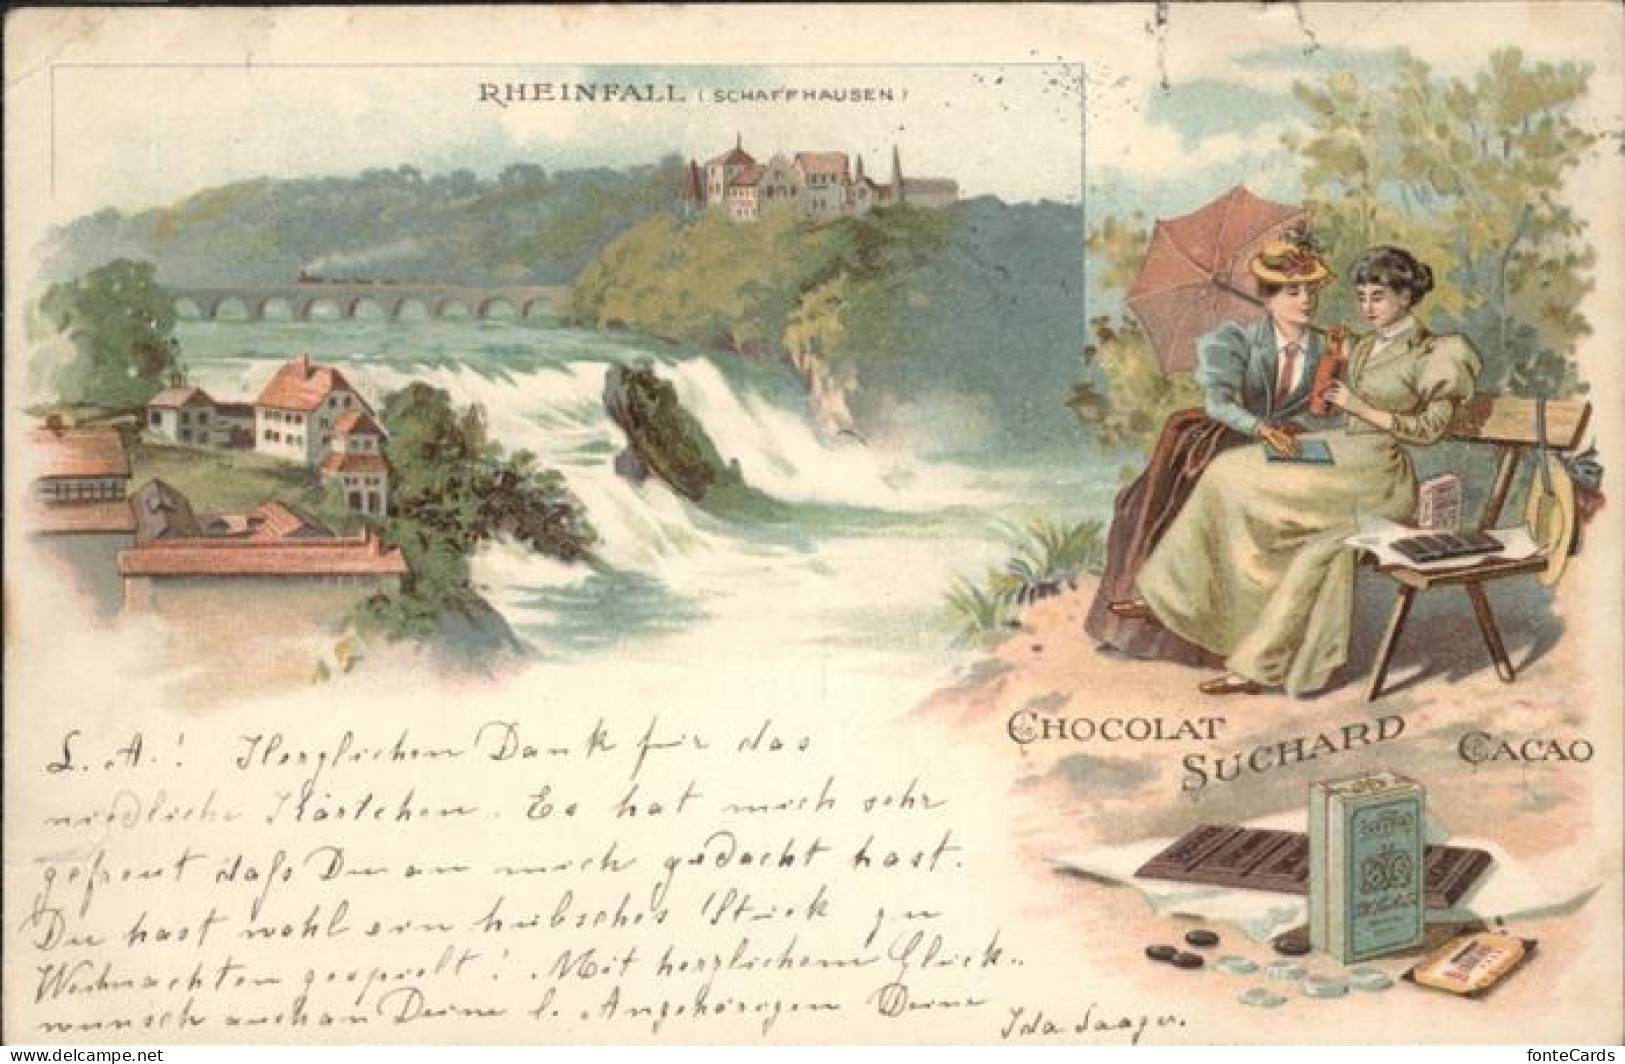 RHEINFALL (SCHAFFHAUSEN)
CHOCOLAT
SUCHARD
CACAO
L. A.! Herzlichen Dank für das
niedliche Kärtchen. Es hat mich sehr
gefreut daß Du an mich gedacht hast.
Du hast wohl ein hübsches Stück zu
Weihnachten gespielt! Mit herzlichem Glück-
wunsch auch an Deine l. Angehörigen Deine
Ida Saager.
www.delcampe.net
fonteCards